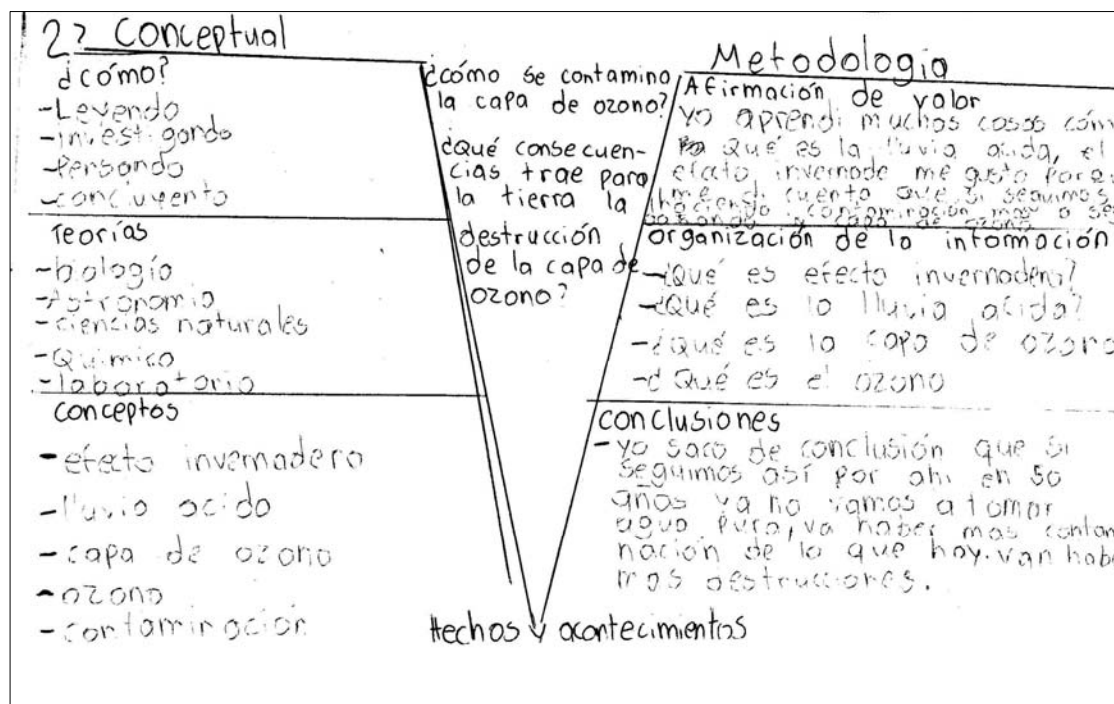 2? Conceptual
¿cómo?
-Leyendo
-investigando
-Pensando
-concluyento
teorías
-biología
-Astronomia
-ciencias naturales
-Química
-laboratorio
conceptos
-efecto invernadero
-lluvia acida
-capa de ozono
-ozono
-contaminación
¿cómo se contamino
la capa de ozono?
¿Qué consecuen-
cias trae para
la tierra la
destrucción
de la capa de
ozono?
Hechos y acontecimientos
Metodologia
Afirmación de valor
yo aprendi muchas cosas cómo
Qué es la lluvia acida, el
efecto invernade me gusto
me di cuenta que si seguimos
haciendo contaminación mas
capa de ozono
organización de la información
-¿Qué es efecto invernadero?
-¿Qué es la lluvia acida?
-¿qué es la capa de ozono
-¿Qué es el ozono
conclusiones
-yo saco de conclusión que si
seguimos así por ahi en 50
años ya no vamos a tomar
agua pura, va haber mas contami
nación de lo que hay. van habe
mas destrucciones.